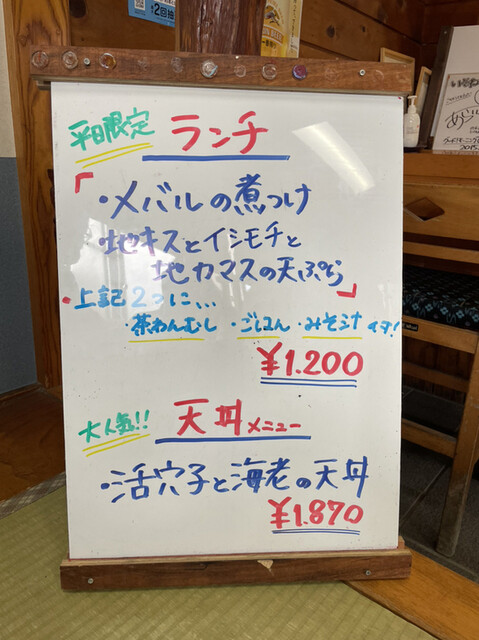 全2回抽
平日限定 ランチ
「
・メバルの煮つけ
・地キスとイシモチと
地カマスの天ぷら」
・上記2つに、、、
・茶わんむし ・ごはん ・みそ汁 付き!
¥1.200
大人気!! 天丼メニュー
・活穴子と海老の天丼
¥1.870